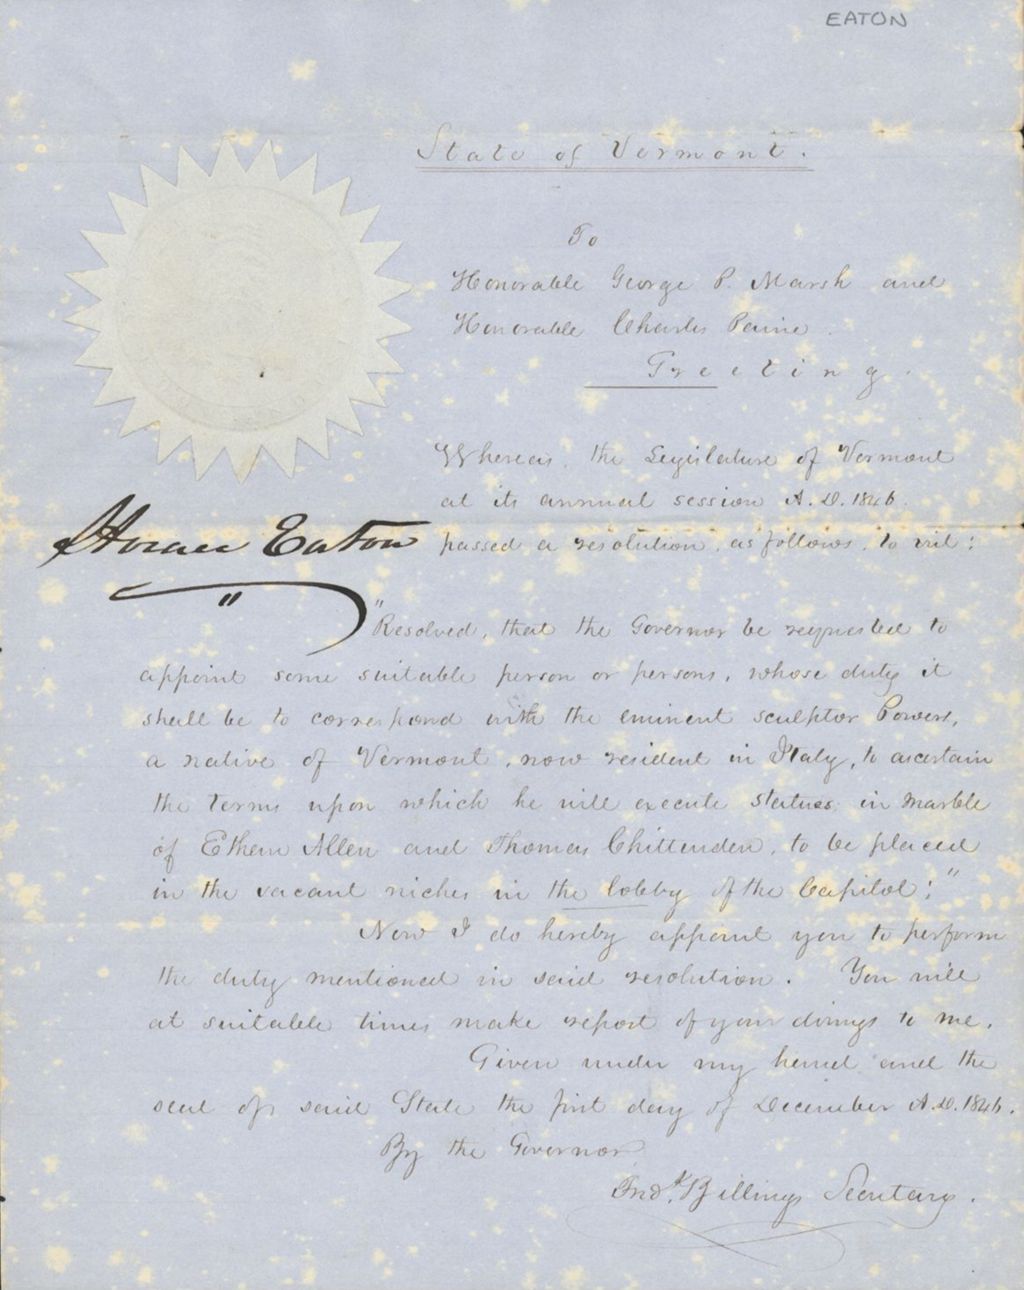 EATON
State of Vermont.
To
Honorable George P. Marsh and
Honorable Charles Paine.
Greeting.
Whereas, the Legislature of Vermont
at its annual session A.D. 1846.
Horace Eaton
passed a resolution, as follows, to wit:
"Resolved, that the Governor be requested to
appoint some suitable person or persons, whose duty it
shall be to correspond with the eminent sculptor Powers,
a native of Vermont, now resident in Italy, to ascertain
the terms upon which he will execute statues in marble
of Ethan Allen and Thomas Chittenden, to be placed
in the vacant niches in the lobby of the Capitol;"
Now I do hereby appoint you to perform
the duty mentioned in said resolution. You will
at suitable times make report of your doings to me.
Given under my hand and the
seal of said State the first day of December A.D. 1846.
By the Governor
Fredk. Billings Secretary.